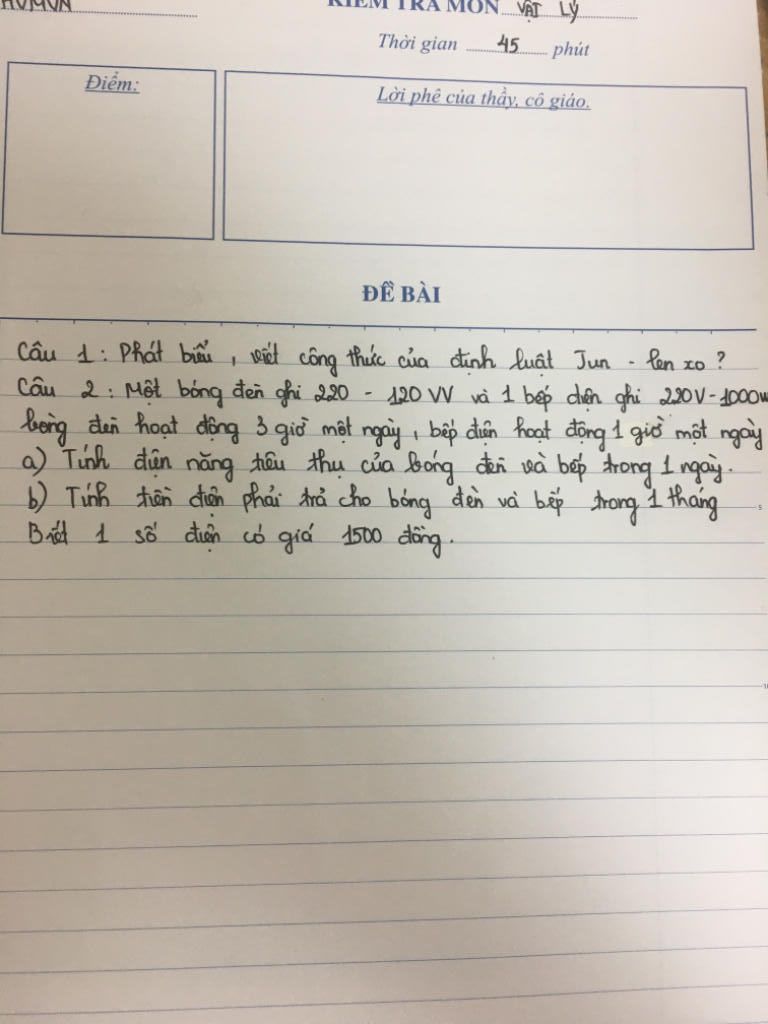 KIỂM TRA MÔN VẬT LÝ
Thời gian 45 phút
Điểm:
Lời phê của thầy, cô giáo.
ĐỀ BÀI
Câu 1 : Phát biểu, viết công thức của định luật Jun - len xo ?
Câu 2 : Một bóng đèn ghi 220 - 120 W và 1 bếp điện ghi 220V-1000w
bóng đèn hoạt động 3 giờ một ngày, bếp điện hoạt động 1 giờ một ngày
a) Tính điện năng tiêu thụ của bóng đèn và bếp trong 1 ngày.
b) Tính tiền điện phải trả cho bóng đèn và bếp trong 1 tháng
Biết 1 số điện có giá 1500 đồng.
5